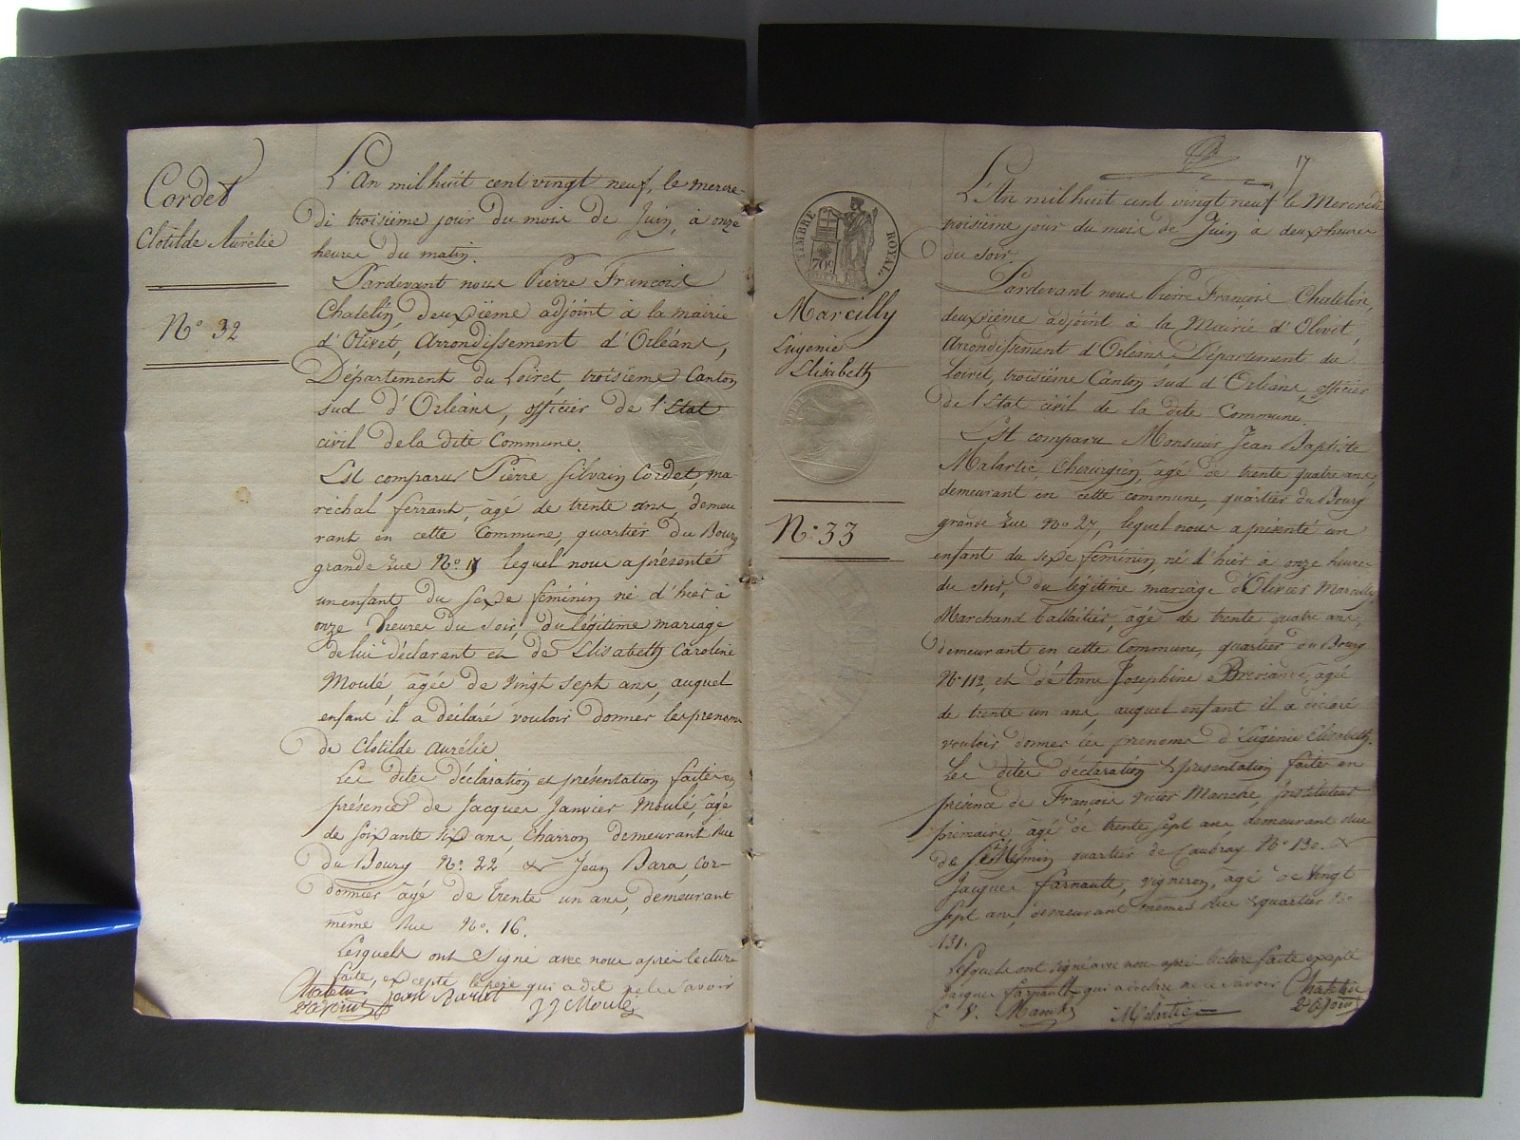 Cordet
Clotilde Aurélie
N.° 32
L'An mil huit cent vingt neuf, le mercre-
di troisième jour du mois de Juin, à onze
heures du matin.
Pardevant nous Pierre François
Chatelin, deuxième adjoint à la mairie
d'Olivet, Arrondissement d'Orléans,
Département du Loiret, troisième Canton
sud d'Orléans, officier de l'Etat
civil de la dite Commune.
Est comparus Pierre Silvain Cordet, ma
réchal ferrant, âgé de trente ans, demeu
rant en cette Commune, quartier du Bourg
grande rue N.° lequel nous a présenté
un enfant du sexe féminin né d'hier à
onze heures du soir, du légitime mariage
de lui déclarant et de Elisabeth Caroline
Moulé, âgée de vingt sept ans, auquel
enfant il a déclaré vouloir donner les prenoms
de Clotilde Aurélie
Les dites déclaration et présentation faites en
présence de Jacques Janvier Moulé, âgé
de soixante six ans, Charron, demeurant Rue
du Bourg N.° 22 & Jean Bara, Cor-
donnier âgé de trente un ans, demeurant
même Rue N.° 16.
Lesquels ont signé avec nous après lecture
faite, excepté le père qui a dit ne le savoir
J J Moulé
17
TIMBRE ROYAL
Marcilly
Eugénie
Elisabeth
N.° 33
L'An mil huit cent vingt neuf le Mercredi
troisième jour du mois de Juin à deux heures
du soir.
Pardevant nous Pierre François Chatelin,
deuxième adjoint à la Mairie d'Olivet,
Arrondissement d'Orléans, Département du
Loiret, troisième Canton sud d'Orléans, officier
de l'Etat civil de la dite Commune.
Est comparu Monsieur Jean Baptiste
Malartic, Chirurgien, âgé de trente quatre ans,
demeurant en cette commune, quartier du Bourg
grande rue N.° 27, lequel nous a présenté un
enfant du sexe féminin, né d'hier à onze heures
du soir, du légitime mariage d'Olivier Marcilly,
Marchand âgé de trente quatre ans,
demeurant en cette Commune, quartier du Bourg
N.° 112, et d'Anne Josephine âgée
de trente un ans, auquel enfant il a déclaré
vouloir donner les prenoms d'Eugénie Elisabeth.
Les dites déclaration & présentation faites en
présence de François Manche, Instituteur
primaire, âgé de trente sept ans, demeurant Rue
de St Mesmin quartier de Caubray N.° 130. &
Jacques Farnault, vigneron, âgé de vingt
sept ans, demeurant mêmes Rue & quartier N.°
131.
Lesquels ont signé avec nous après lecture faite excepté
Jacques Farnault qui a déclaré ne le savoir Chatelin
Malartic